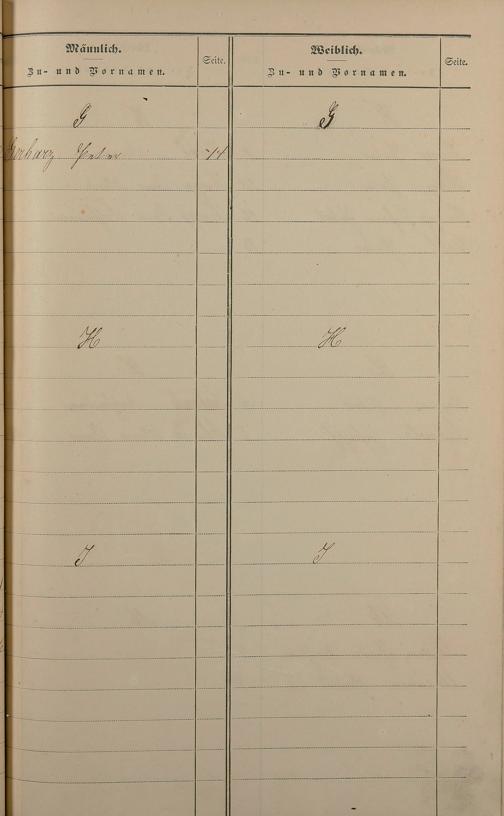 Männlich.
Zu- und Vornamen.
Seite.
Weiblich.
Zu- und Vornamen.
Seite.
G
G
Peter
H
H
I
I